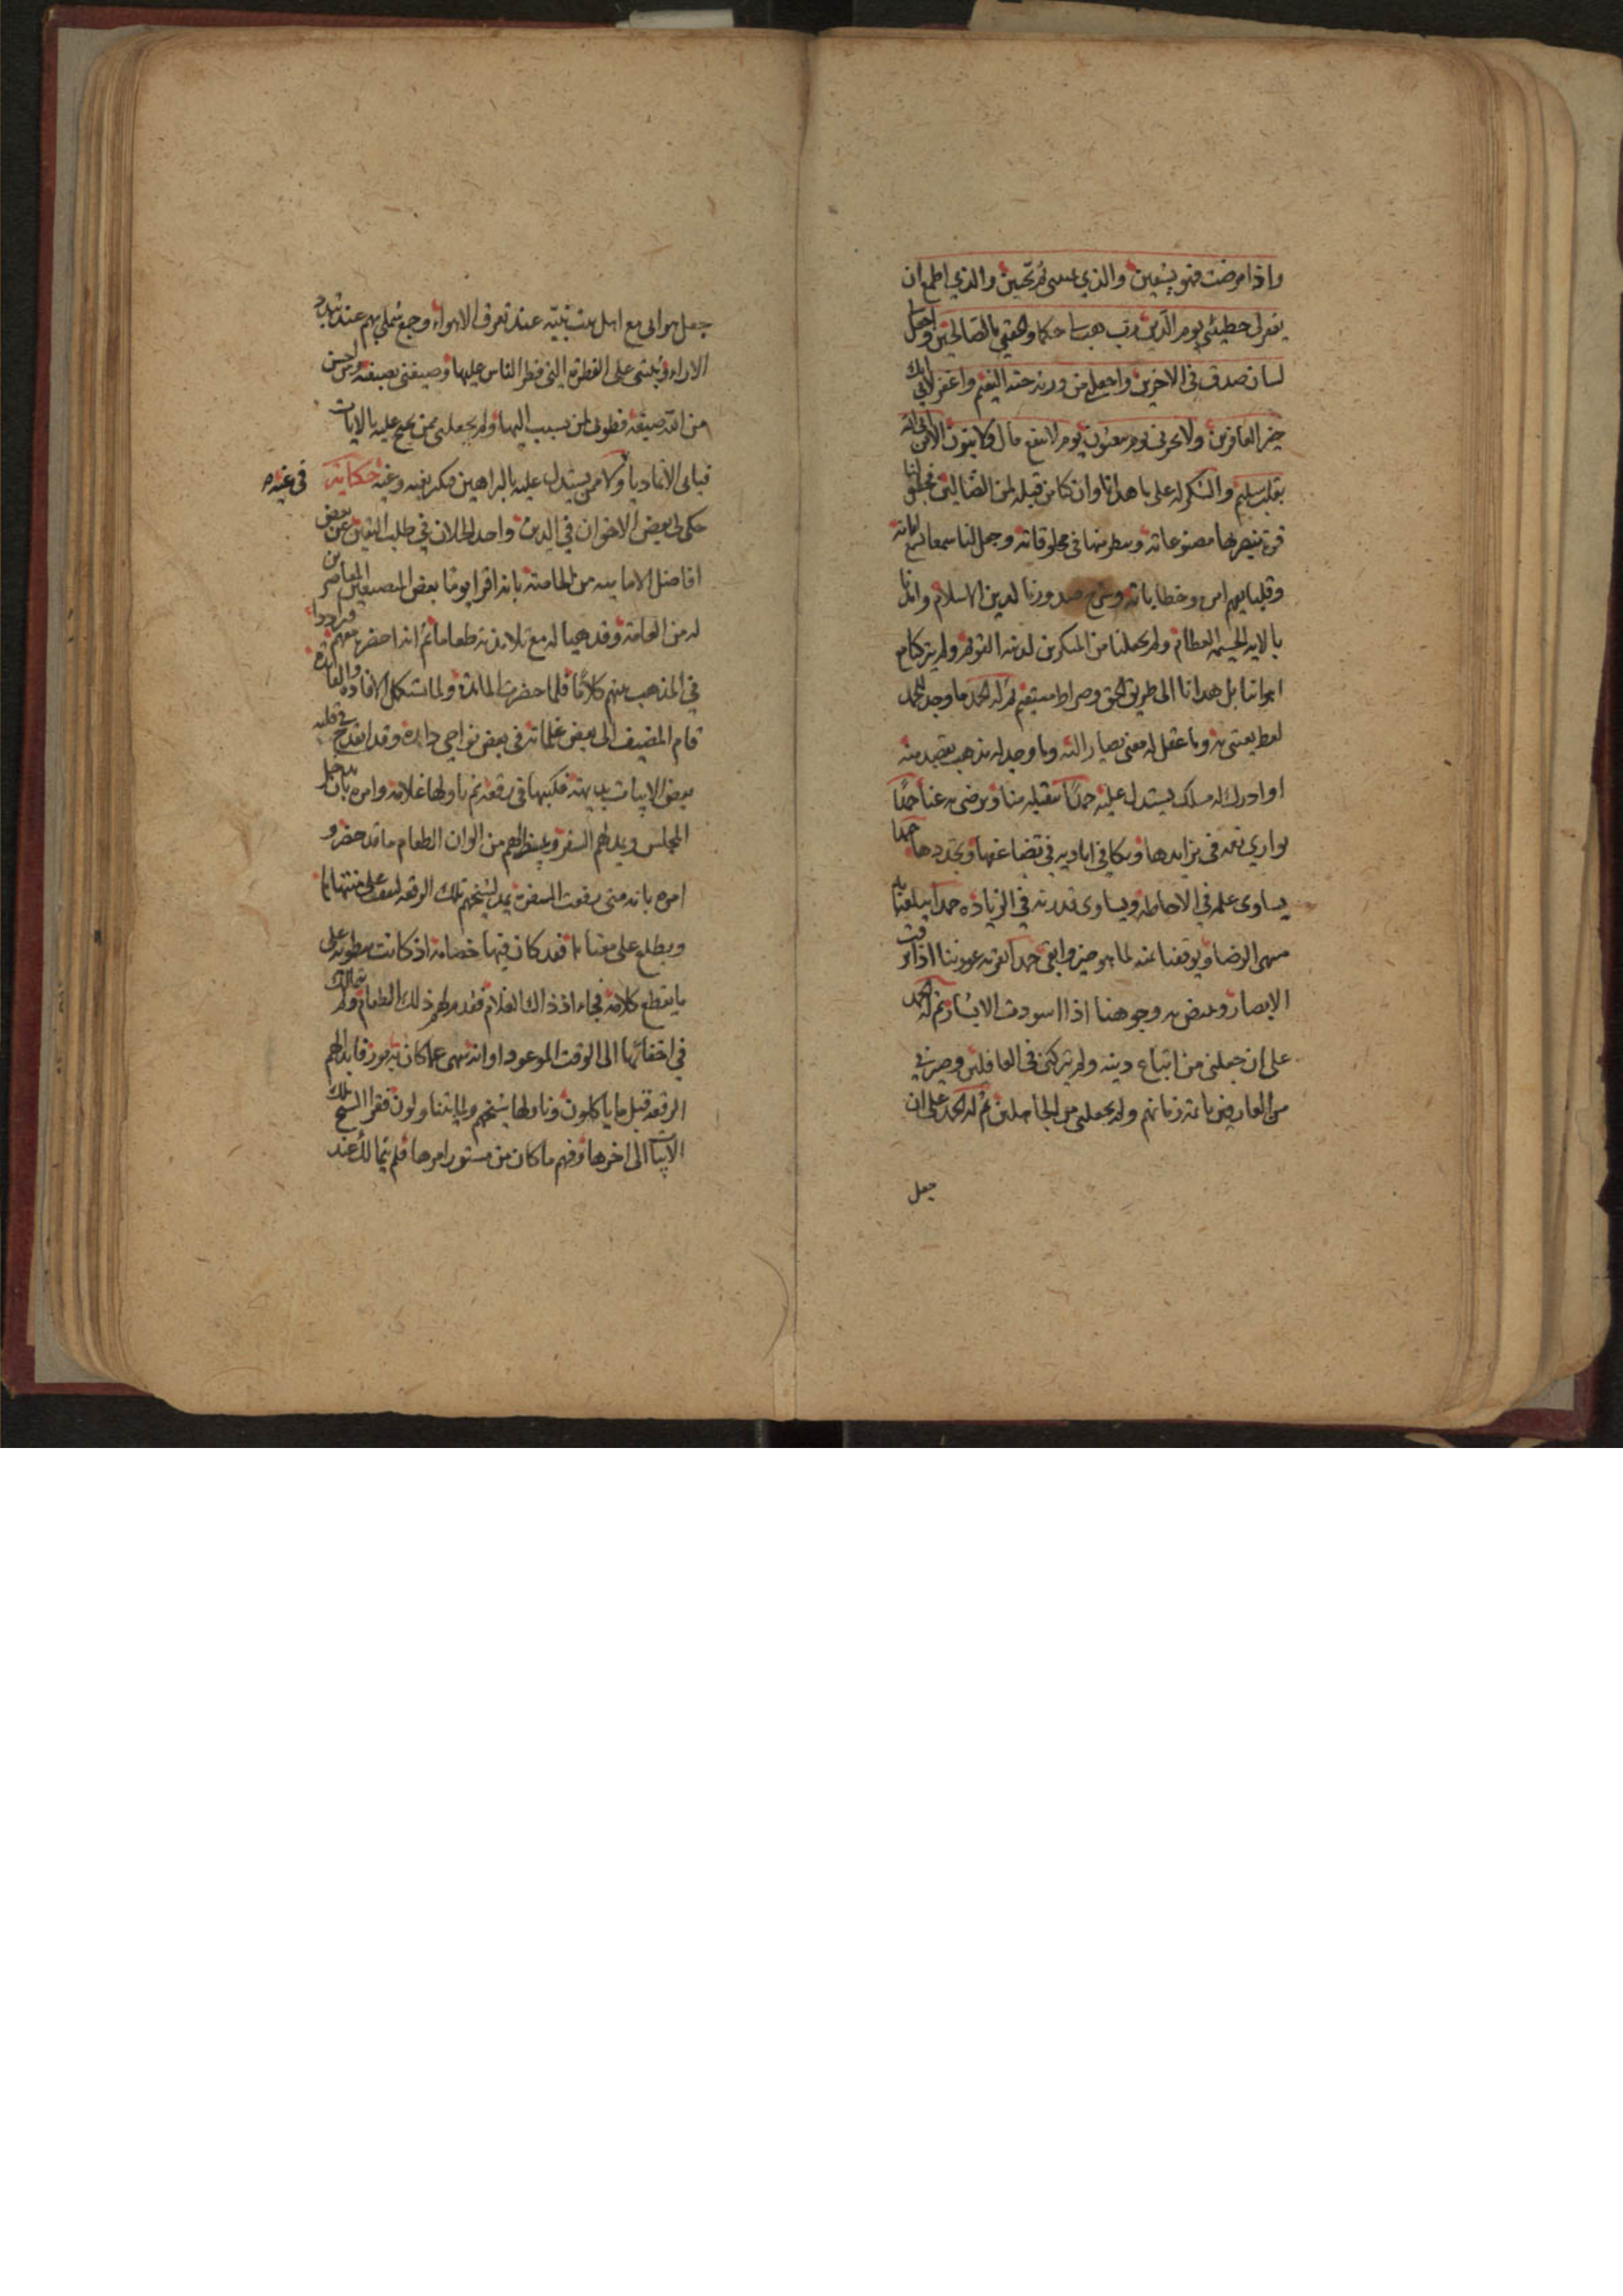 واذا مرضت فهو يشفين والذي يميتني ثم يحيين والذي اطمع ان
يغفر لي خطيئتي يوم الدين رب هب لي حكما والحقني بالصالحين واجعل لي
لسان صدق في الاخرين واجعلني من ورثة جنة النعيم واغفر لابي انك
خير الغافرين ولا تخزني يوم يبعثون يوم لا ينفع مال ولا بنون الا من اتى الله
بقلب سليم والشكر له على ما هدانا وان كنا من قبله لمن الضالين فجعل لنا
قوة نبصر بها مصنوعاته وننظر بها في مخلوقاته وجعل لنا سمعا
وقلبا يفهم وخطاباته وشرح صدورنا لدين الاسلام
بالايه الجسيمه العظام ولم يجعلنا من المنكرين لدينه القويم ولم يتركنا مع
اهوائنا بل هدانا الى طريق الحق وصراط مستقيم ثم له الحمد ما وجد للحمد
لفظ يعتني به وما عقل له معنى يصار اليه وما وجد له مذهب يقصد منه
او ادرك له مسلك يستدل عليه حمدا يتقبله منا ويرضى به عنا حمدا
يوازي نعمه في تزايدها ويكافي اياديه في تضاعفها وتجددها حمدا
يساوي علمه في الاحاطه ويساوي قدرته في الزياده حمدا يبلغنا به
منتهى الرضا ويوقفنا منه لما هو خير وابقى حمدا تقر به عيوننا اذا برقت
الابصار وتبيض به وجوهنا اذا اسودت الابشار ثم له الحمد
على ان جعلني من اتباع دينه ولم يتركني في الغافلين وصيرني
من العارفين بائمة زمانهم ولم يجعلني من الجاهلين ثم له الحمد على ان
جعل
جعل هوائي مع اهل بيت نبيه عند تفرق الاهواء وجمع شملي بهم عند تبدد
الاراء وثبتني على الفطرة التي فطر الناس عليها وصبغني بصبغته ومن احسن
من الله صبغة فطوبى لمن ينسب اليها ولم يجعلني ممن يحتج عليه بالايات
فيابى الا تماديا ولا ممن يستدل عليه بالبراهين فيكر بغيه وغيه حكاية
في غيه
حكى لي بعض الاخوان في الدين واحد الخلان في طلب اليقين عن بعض
افاضل الامامية من الخاصة بانه اقرا يوما بعض المعاصرين
له من العامة وقد هيا له مع تلامذته طعاما ثم انه احضر معهم
في المذهب بينهم كلاما فلما حضرت المائدة ولما تستكمل الافادة والفائدة
قام المضيف الى بعض غلمانه في بعض نواحي داره وقد انقدح في قلبه
بعض الابيات بديهة فكتبها في رقعة ثم ناولها غلامه وامره بان يدخل
المجلس ويمد لهم السفرة ويبسط لهم من الوان الطعام ما قد حضر و
امره بانه متى رفعت السفرة يمد لشيخهم تلك الرقعه ليقف على منتهاها
ويطلع على معناها فقد كان فيها خصامه اذ كانت منطوية على
ما يقطع كلامه فجاء اذ ذاك الغلام فقدم لهم ذلك الطعام ولم يتمالك
في اخفائها الى الوقت الموعود او انه سهى عما كان به يوز فابدالهم
الرقعه قبل ما ياكلون وناولها شيخهم ولما يتناولون فقرا الشيخ تلك
الابيات الى اخرها وفهم ما كان من مستور امرها فلم يتمالك عند